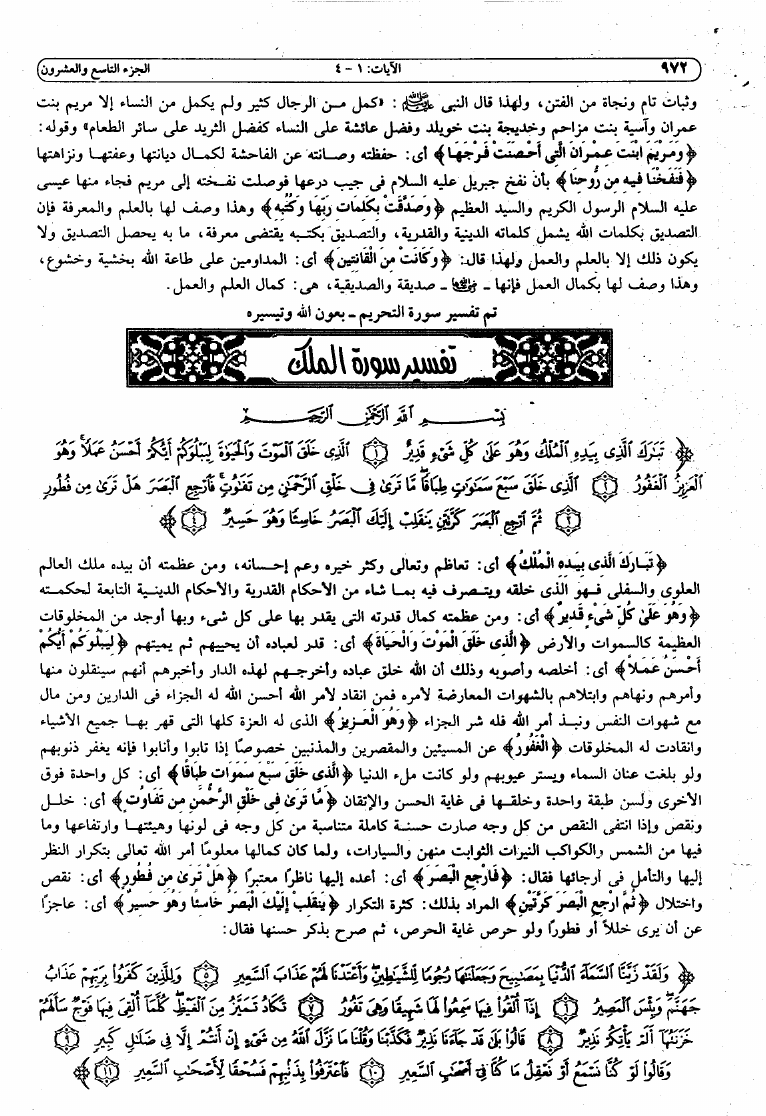 ٩٧٢ الآيات: ١ - ٤ الجزء التاسع والعشرون
وثبات تام ونجاة من الفتن، ولهذا قال النبى ﷺ : «كمل مـن الرجال كثير ولم يكمل من النساء إلا مريم بنت
عمران وآسية بنت مزاحم وخديجة بنت خويلد وفضل عائشة على النساء كفضل الثريد على سائر الطعام» وقوله:
﴿وَمَرْيَمَ ابْنَتَ عِمْرَانَ الَّتِي أَحْصَنَتْ فَرْجَهَا﴾ أى: حفظته وصـانته عن الفاحشة لكمـال ديانتها وعفتهـا ونزاهتها
﴿فَنَفَخْنَا فِيهِ مِن رُّوحِنَا﴾ بأن نفخ جبريل عليه السلام فى جيب درعها فوصلت نفـخته إلى مريم فجاء منها عيسى
عليه السلام الرسول الكريم والسيد العظيم ﴿وَصَدَّقَتْ بِكَلِمَاتِ رَبِّهَا وَكُتُبِهِ﴾ وهذا وصف لها بالعلم والمعرفة فإن
التصديق بكلمات الله يشمل كلماته الدينية والقدرية، والتصديق بكتـبه يقتضى معرفة، ما به يحصل التصديق ولا
يكون ذلك إلا بالعلم والعمل ولهذا قال: ﴿وَكَانَتْ مِنَ الْقَانِتِينَ﴾ أى: المداومين على طاعة الله بخشية وخشوع،
وهذا وصف لها بكمال العمل فإنها ـ ـ صديقة والصديقية، هى: كمال العلم والعمل.
تم تفسير سورة التحريم ـ بعون الله وتيسيره
تفسير سورة الملك
بِسْمِ اللَّهِ الرَّحْمَٰنِ الرَّحِيمِ
﴿ تَبَٰرَكَ ٱلَّذِى بِيَدِهِ ٱلْمُلْكُ وَهُوَ عَلَىٰ كُلِّ شَىْءٍ قَدِيرٌ ١ ٱلَّذِى خَلَقَ ٱلْمَوْتَ وَٱلْحَيَوٰةَ لِيَبْلُوَكُمْ أَيُّكُمْ أَحْسَنُ عَمَلًا ۚ وَهُوَ
ٱلْعَزِيزُ ٱلْغَفُورُ ٢ ٱلَّذِى خَلَقَ سَبْعَ سَمَٰوَٰتٍ طِبَاقًا ۖ مَّا تَرَىٰ فِى خَلْقِ ٱلرَّحْمَٰنِ مِن تَفَٰوُتٍ ۖ فَٱرْجِعِ ٱلْبَصَرَ هَلْ تَرَىٰ مِن فُطُورٍ
٣ ثُمَّ ٱرْجِعِ ٱلْبَصَرَ كَرَّتَيْنِ يَنقَلِبْ إِلَيْكَ ٱلْبَصَرُ خَاسِئًا وَهُوَ حَسِيرٌ ٤ ﴾
﴿تَبَارَكَ الَّذِي بِيَدِهِ الْمُلْكُ﴾ أى: تعاظم وتعالى وكثر خيره وعم إحـسانه، ومن عظمته أن بيده ملك العالم
العلوى والسفلى فـهو الذى خلقه ويتـصرف فيه بمـا شاء من الأحكام القدرية والأحكام الدينـية التابعة لحكمـته
﴿وَهُوَ عَلَىٰ كُلِّ شَيْءٍ قَدِيرٌ﴾ أى: ومن عظمته كمال قدرته التى يقدر بها على كل شىء وبها أوجد من المخلوقات
العظيمة كالسموات والأرض ﴿الَّذِي خَلَقَ الْمَوْتَ وَالْحَيَاةَ﴾ أى: قدر لعباده أن يحييهم ثم يميتهم ﴿لِيَبْلُوَكُمْ أَيُّكُمْ
أَحْسَنُ عَمَلاً﴾ أى: أخلصه وأصوبه وذلك أن الله خلق عباده وأخرجـهم لهذه الدار وأخبرهم أنهم سينقلون منها
وأمرهم ونهاهم وابتلاهم بالشهوات المعارضة لأمره فمن انقاد لأمر الله أحسن الله له الجزاء فى الدارين ومن مال
مع شهوات النفس ونبـذ أمر الله فله شر الجزاء ﴿وَهُوَ الْعَزِيزُ﴾ الذى له العزة كلها التى قهر بهـا جميع الأشياء
وانقادت له المخلوقات ﴿الْغَفُورُ﴾ عن المسيئين والمقصرين والمذنبين خصوصًا إذا تابوا وأنابوا فإنه يغفر ذنوبهم
ولو بلغت عنان السماء ويستر عيوبهم ولو كانت ملء الدنيا ﴿الَّذِي خَلَقَ سَبْعَ سَمَوَاتٍ طِبَاقًا﴾ أى: كل واحدة فوق
الأخرى ولسن طبقة واحدة وخلقـها فى غاية الحسن والإتقان ﴿مَّا تَرَىٰ فِي خَلْقِ الرَّحْمَنِ مِن تَفَاوُتٍ﴾ أى: خلـل
ونقص وإذا انتفى النقص من كل وجه صارت حسنـة كاملة متناسبة من كل وجه فى لونها وهيئتهـا وارتفاعها وما
فيها من الشمس والكواكب النيرات الثوابت منهن والسيارات، ولما كان كمالها معلومًا أمر الله تعالى بتكرار النظر
إليها والتأمل فى أرجائها فقال: ﴿فَارْجِعِ الْبَصَرَ﴾ أى: أعده إليها ناظرًا معتبرًا ﴿هَلْ تَرَىٰ مِن فُطُورٍ﴾ أى: نقص
واختلال ﴿ثُمَّ ارْجِعِ الْبَصَرَ كَرَّتَيْنِ﴾ المراد بذلك: كثرة التكرار ﴿يَنقَلِبْ إِلَيْكَ الْبَصَرُ خَاسِئًا وَهُوَ حَسِيرٌ﴾ أى: عاجزًا
عن أن يرى خللاً أو فطورًا ولو حرص غاية الحرص، ثم صرح بذكر حسنها فقال:
﴿ وَلَقَدْ زَيَّنَّا ٱلسَّمَآءَ ٱلدُّنْيَا بِمَصَٰبِيحَ وَجَعَلْنَٰهَا رُجُومًا لِّلشَّيَٰطِينِ ۖ وَأَعْتَدْنَا لَهُمْ عَذَابَ ٱلسَّعِيرِ ٥ وَلِلَّذِينَ كَفَرُوا۟ بِرَبِّهِمْ عَذَابُ
جَهَنَّمَ ۖ وَبِئْسَ ٱلْمَصِيرُ ٦ إِذَآ أُلْقُوا۟ فِيهَا سَمِعُوا۟ لَهَا شَهِيقًا وَهِىَ تَفُورُ ٧ تَكَادُ تَمَيَّزُ مِنَ ٱلْغَيْظِ ۖ كُلَّمَآ أُلْقِىَ فِيهَا فَوْجٌ سَأَلَهُمْ
خَزَنَتُهَآ أَلَمْ يَأْتِكُمْ نَذِيرٌ ٨ قَالُوا۟ بَلَىٰ قَدْ جَآءَنَا نَذِيرٌ فَكَذَّبْنَا وَقُلْنَا مَا نَزَّلَ ٱللَّهُ مِن شَىْءٍ إِنْ أَنتُمْ إِلَّا فِى ضَلَٰلٍ كَبِيرٍ ٩
وَقَالُوا۟ لَوْ كُنَّا نَسْمَعُ أَوْ نَعْقِلُ مَا كُنَّا فِىٓ أَصْحَٰبِ ٱلسَّعِيرِ ١٠ فَٱعْتَرَفُوا۟ بِذَنۢبِهِمْ فَسُحْقًا لِّأَصْحَٰبِ ٱلسَّعِيرِ ١١ ﴾